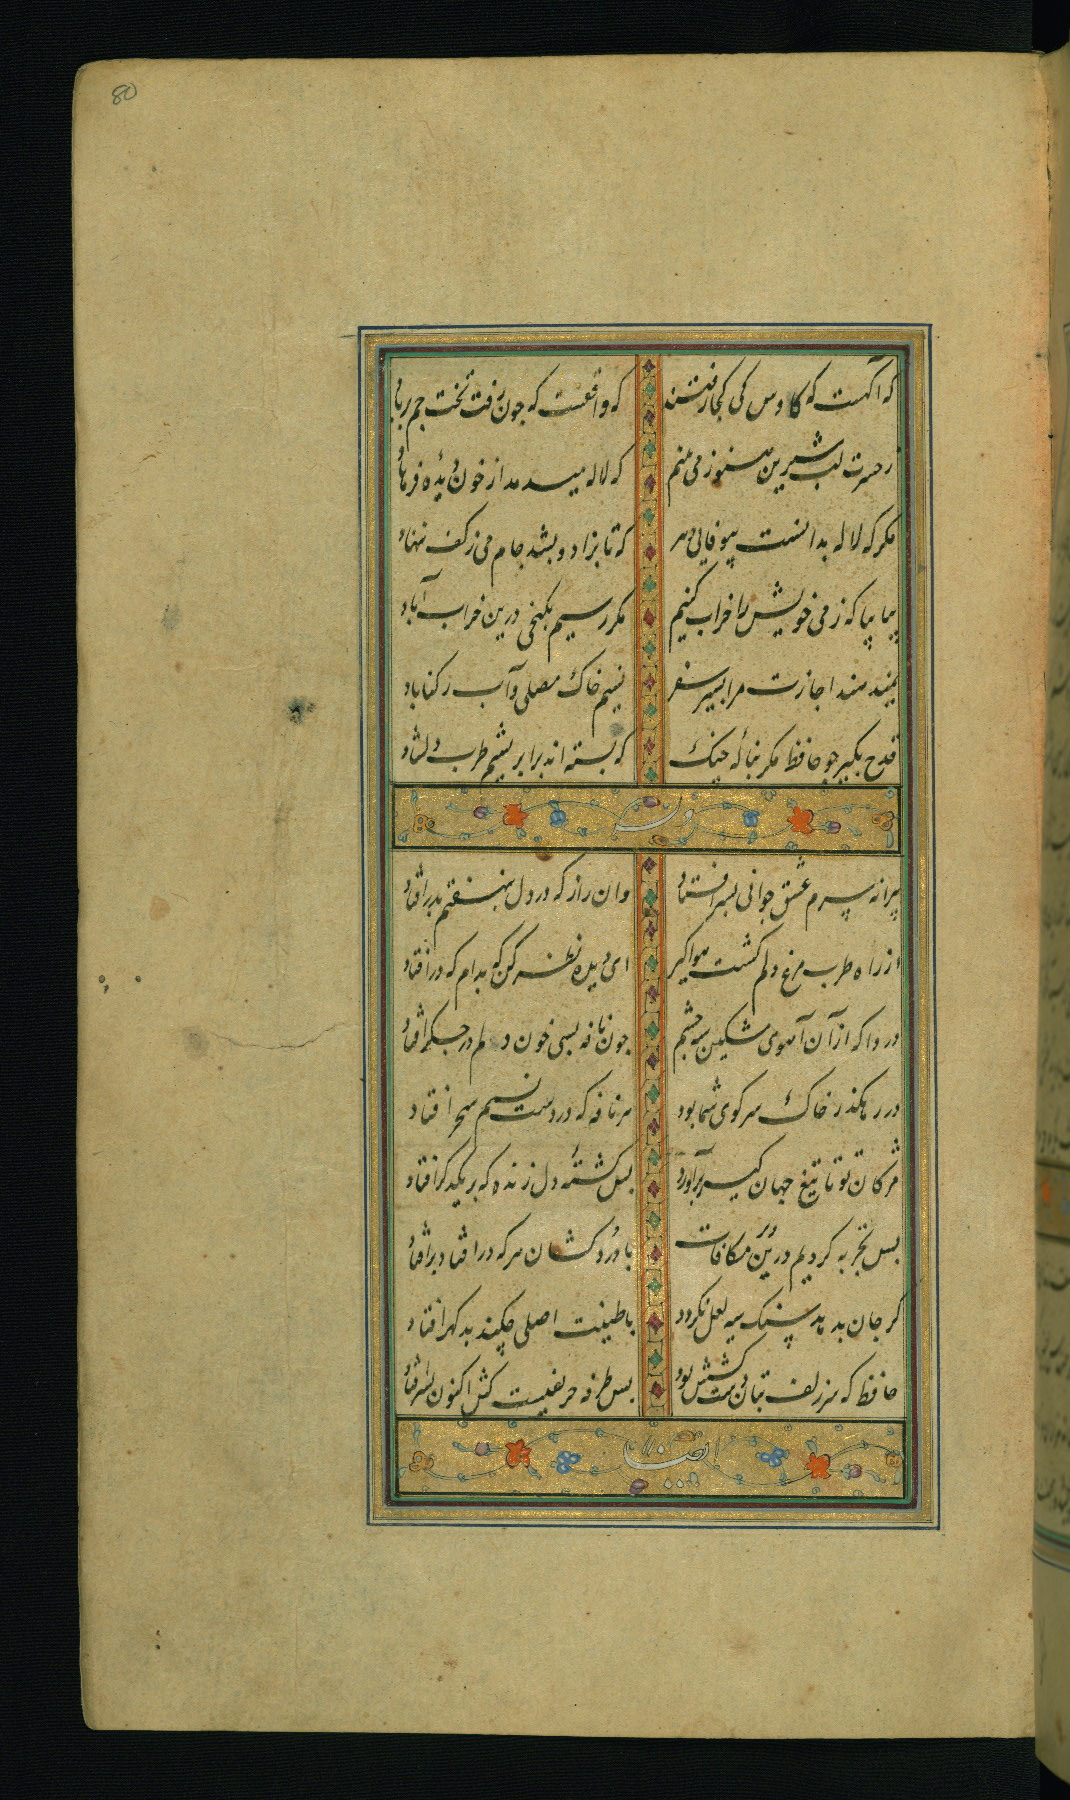 80
که آگهست که کاوس کی کجا رفتند که واقفست که چون رفت تخت جم بر باد
ز حسرت لب شیرین هنوز می بینم که لاله میدمد از خون دیده فرهاد
مکر که لاله بدانست بیوفائی دهر که تا بزاد و بشد جام می ز کف ننهاد
بیا بیا که ز می خویش را خراب کنیم مکر رسیم بکنجی درین خراب آباد
نمیدهند اجازت مرا بسیر سفر نسیم خاک مصلی و آب رکناباد
قدح بگیر چو حافظ مکر بنالهٔ چنک که بسته اند بر ابریشم طرب دلشاد
وله
پیرانه سرم عشق جوانی بسر افتاد وان راز که در دل بنهفتم بدر افتاد
از راه طرب مرغ دلم کشت هواگیر ای دیده نظر کن که بدام که در افتاد
دردا که از آن آهوی مشکین سیه چشم چون نافه بسی خون دلم در جکر افتاد
در رهکذر خاک سر کوی شما بود هر نافه که در دست نسیم سحر افتاد
مژکان تو تا تیغ جهان کیر برآورد بس کشتهٔ دل زنده که بر یکدکر افتاد
بس تجربه کردیم درین دیر مکافات با درد کشان هر که در افتاد بر افتاد
کر جان بدهد سنک سیه لعل نکردد با طینت اصلی چکند بد کهر افتاد
حافظ که سر زلف بتان دست کشش بود بس طرفه حریفیست کش اکنون بسر افتاد
ایضا